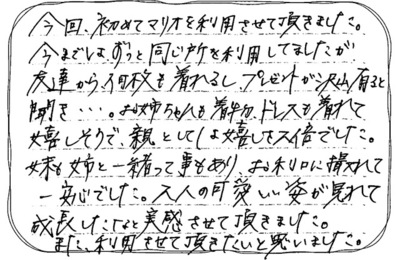 今回、初めてマリオを利用させて頂きました。
今まではずっと同じ所を利用してましたが
友達から何枚も着れるし、プレゼントが沢山有ると
聞き…。お姉ちゃんも着物、ドレスも着れて
嬉しそうで、親としても嬉しさ2倍でした。
妹も姉と一緒って事もあり、お利口に撮れて
一安心でした。2人の可愛いい姿が見れて
成長したなと実感させて頂きました。
また、利用させて頂きたいと思いました。